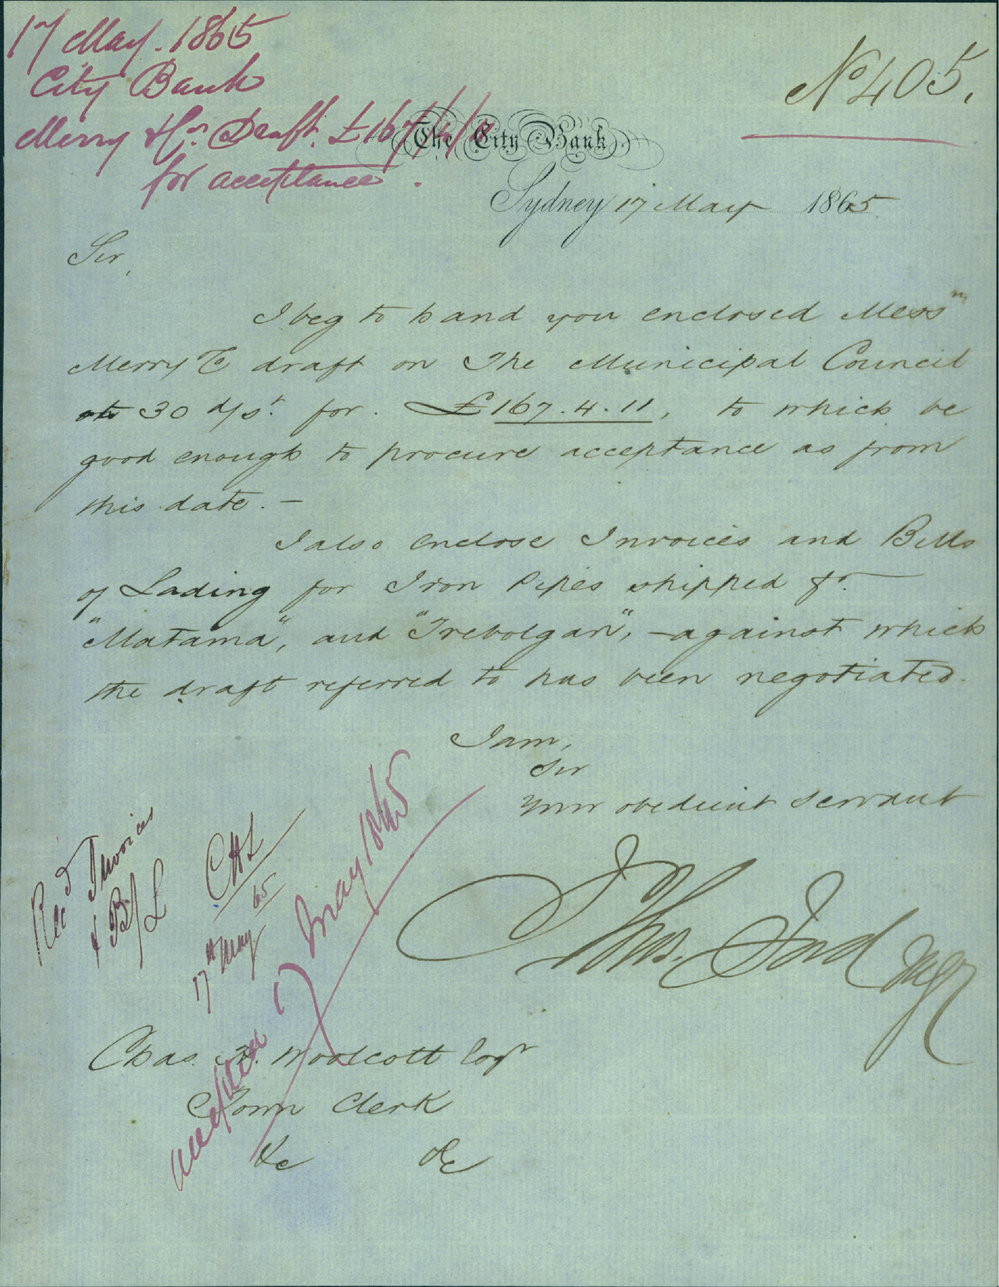 17 May. 1865
City Bank
Merry & Co Draft. £167/4/11
for acceptance.
No 405.
The City Bank.
Sydney 17 May 1865
Sir,
I beg to hand you enclosed Messrs
Merry & Co draft on The Municipal Council
at 30 d/st. for £167.4.11, to which be
good enough to procure acceptance as from
this date. —
I also enclose Invoices and Bills
of Lading for Iron Pipes shipped pr.
"Matama", and "Trebolgan", — against which
the draft referred to has been negotiated.
I am,
Sir
Your obedient servant
Thos. Ford mgr
Recd Invoices
& B/L
CHL
17th May 65
17 May 1865
Chas. H. Woolcott Esqr
Town Clerk
&c &c